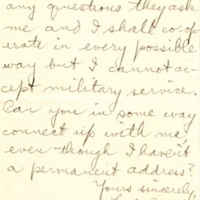 any questions they ask
me and I shall co-op-
erate in every possible
way but I cannot ac-
cept military service.
Can you in some way
connect up with me
even though I haven't
a permanent address?
Yours sincerely,